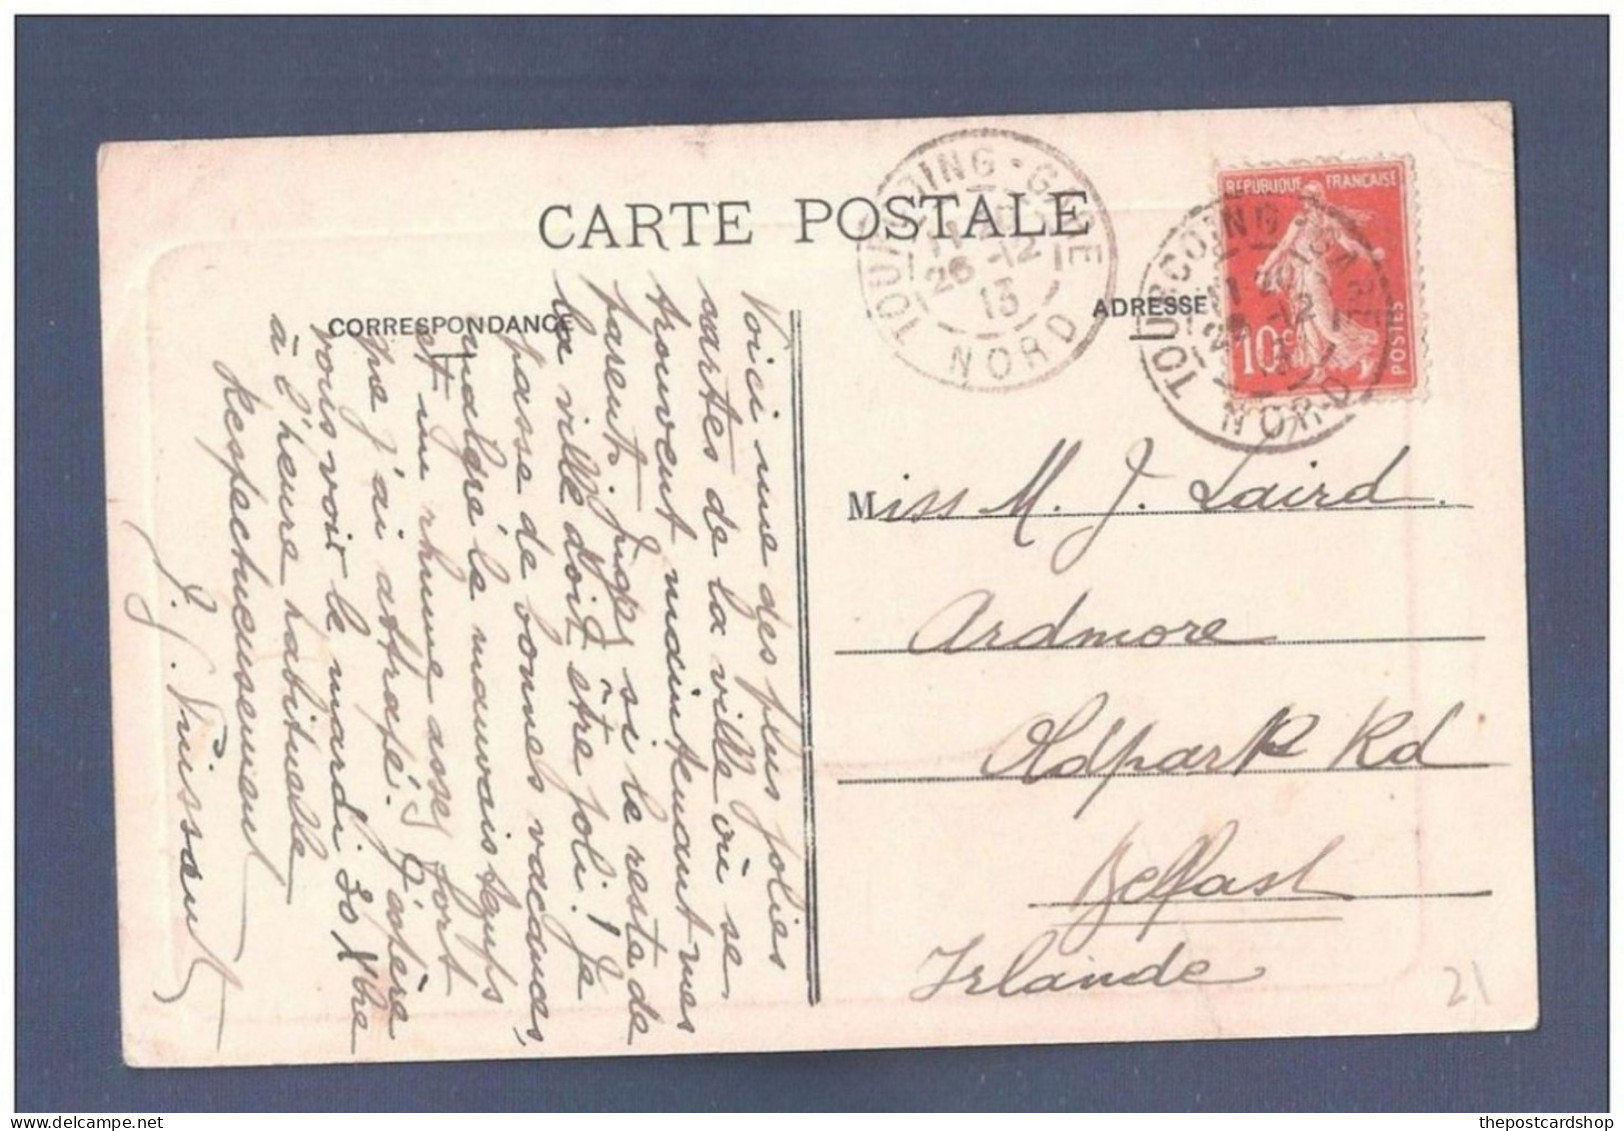 CARTE POSTALE
CORRESPONDANCE
ADRESSE
TOURCOING - GARE
11
26 -12
13
NORD
REPUBLIQUE FRANCAISE
10c
POSTES
TOURCOING - GARE
-12
13
NORD
Voici une des plus jolies
cartes de la ville où se
trouvent maintenant mes
parents. Jugez si le reste de
la ville doit être joli! Je
passe de bonnes vacances,
malgré le mauvais temps
et un rhume assez fort
que j'ai attrapé. J'espère
vous voir le mardi 30 Xbre
à l'heure habituelle
Respectueusement
Miss M. J. Laird.
Ardmore
Oldpark Rd
Belfast
Irlande
21
thepostcardshop